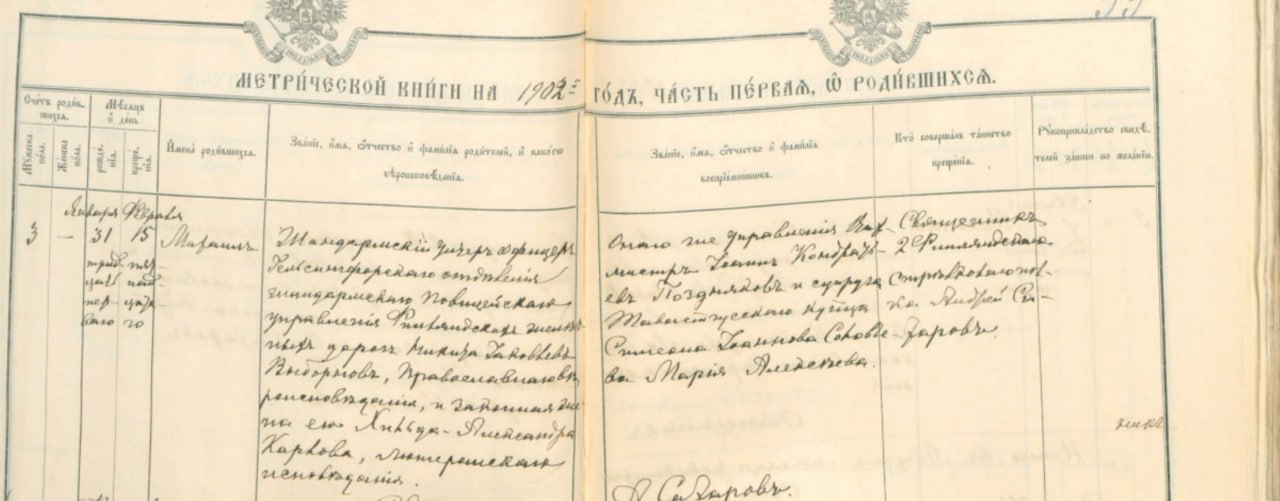 МЕТРИ́ЧЕСКОЙ КНИ́ГИ НА 1902 ГО́ДЪ, ЧА́СТЬ ПЕ́РВАЯ, Ѿ РОДИ́ВШИХСѦ.
Сче́тъ роди́в-
шихся.
Мѣ́сяцъ
и́ де́нь.
Му́жеска по́ла.
Же́нска по́ла.
рожде́-
нія.
креще́-
нія.
И҆мена̀ роди́вшихся.
Зва́ніе, и҆́мя, ѻ҆́тчество и҆ фами́лія роди́телей, и҆ како́гѡ
вѣроисповѣ́данія.
Зва́ніе, и҆́мя, ѻ҆́тчество и҆ фами́лія
воспріе́мниковъ.
Кто̀ соверша́лъ та́инство
креще́нія.
Рукоприкла́дство свидѣ́-
телей за́писи по жела́нію.
Января Февраля
3 — 31 15
трид-
цать
пер-
ваго
пят-
надцата-
го
Михаилъ
Жандармскій унтеръ офицеръ
Гельсингфорскаго отдѣленія
жандармскаго Полицейскаго
управленія Финляндскихъ желѣз-
ныхъ дорогъ Никита Іаковлевъ
Выборновъ, Православнаго вѣ-
роисповѣданія, и законная же-
на его Хильда-Александра
Карлова, лютеранскаго
исповѣданія.
Онаго же управленія Вах-
мистръ Іоаннъ Кондрать-
евъ Поздняковъ и супруга
Тавастгусскаго купца
Симеона Іоаннова Соловье-
ва Марія Алексѣева.
Священникъ
2 Финляндскаго
стрѣлковаго пол-
ка Андрей Са-
харовъ.
А. Сахаровъ.